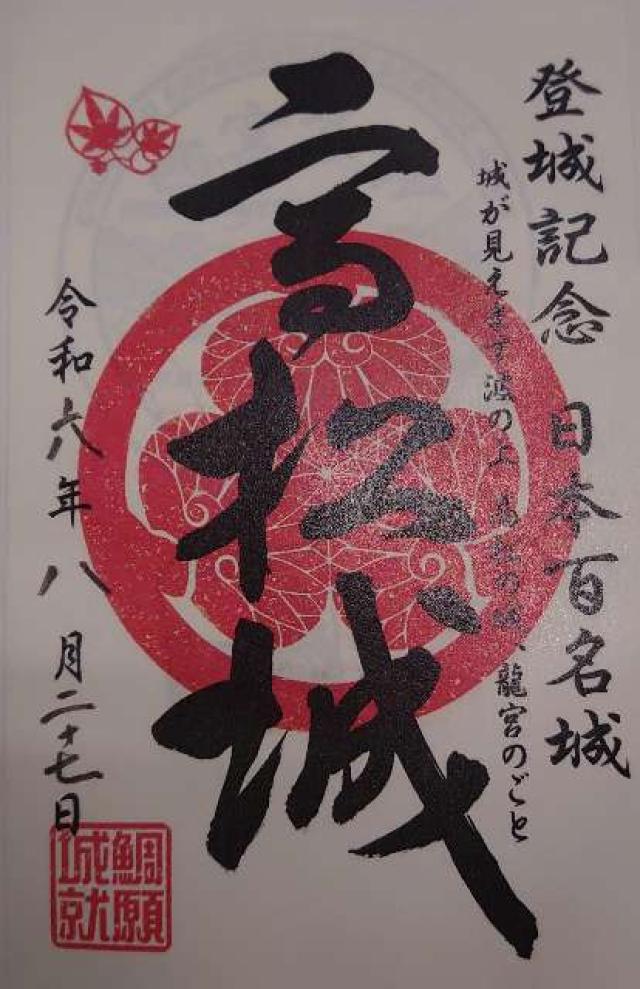 登城記念 日本百名城
城が見えます波の上 高松の城、龍宮のごと
高松城
令和六年八月二十七日
鯛願
城就